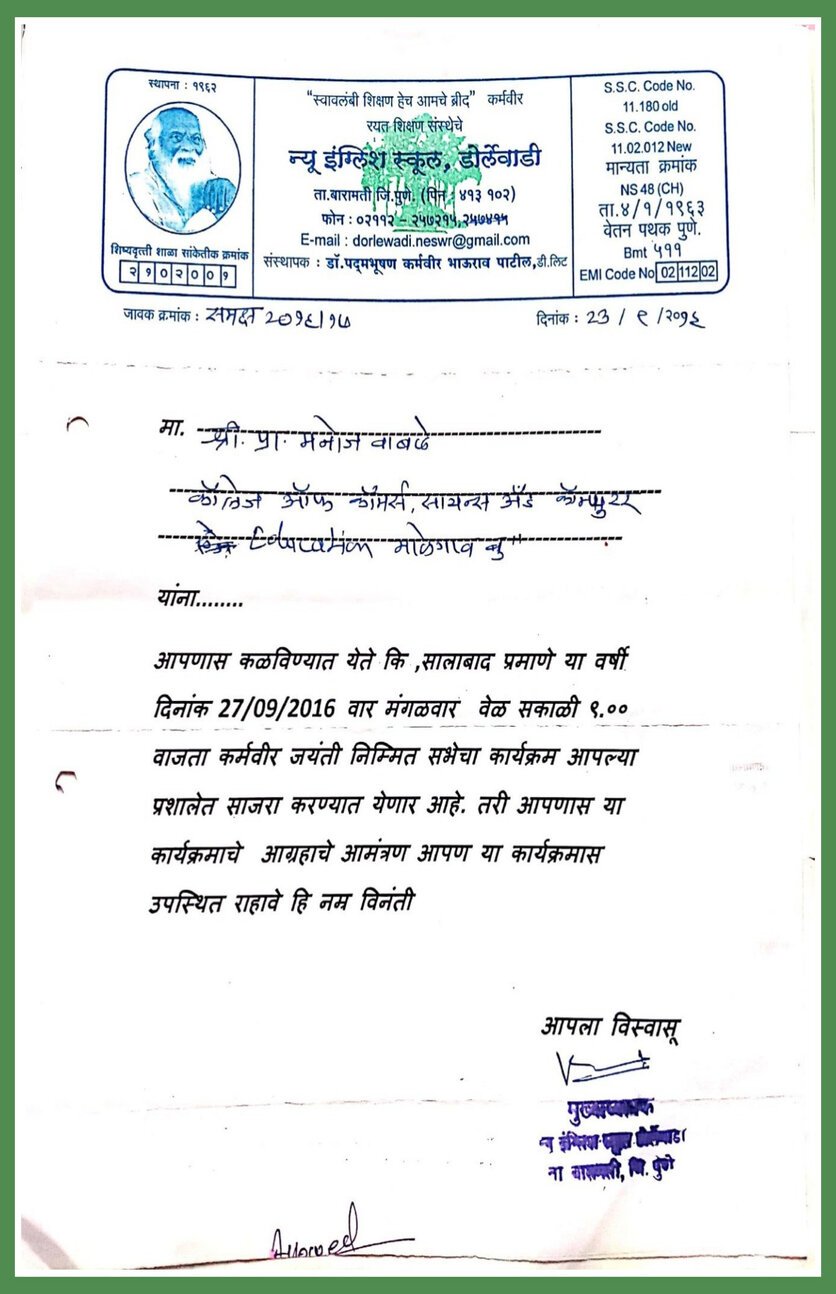 स्थापना : १९६२
शिष्यवृत्ती शाळा सांकेतीक क्रमांक
२१०२००१
"स्वावलंबी शिक्षण हेच आमचे ब्रीद" कर्मवीर
रयत शिक्षण संस्थेचे
न्यू इंग्लिश स्कूल, डोर्लेवाडी
ता.बारामती जि.पुणे. (पिन : ४१३ १०२)
फोन : ०२११२ - २५७२१५, २५७४१५
E-mail : dorlewadi.neswr@gmail.com
संस्थापक : डॉ.पद्मभूषण कर्मवीर भाऊराव पाटील,डी.लिट
S.S.C. Code No.
11.180 old
S.S.C. Code No.
11.02.012 New
मान्यता क्रमांक
NS 48 (CH)
ता.४/१/१९६३
वेतन पथक पुणे.
Bmt ५११
EMI Code No 02 112 02
जावक क्रमांक : समक्ष २०१६/१७
दिनांक : 23 / ९ /२०१६
मा. श्री. प्रा. मनोज वाबळे
कॉलेज ऑफ कॉमर्स, सायन्स अँड कॉम्प्युटर
Education माळेगाव बु॥
यांना........
आपणास कळविण्यात येते कि ,सालाबाद प्रमाणे या वर्षी
दिनांक 27/09/2016 वार मंगळवार वेळ सकाळी ९.००
वाजता कर्मवीर जयंती निम्मित सभेचा कार्यक्रम आपल्या
प्रशालेत साजरा करण्यात येणार आहे. तरी आपणास या
कार्यक्रमाचे आग्रहाचे आमंत्रण आपण या कार्यक्रमास
उपस्थित राहावे हि नम्र विनंती
आपला विस्वासू
मुख्याध्यापक
न्यू इंग्लिश स्कूल डोर्लेवाडी
ता बारामती, जि. पुणे